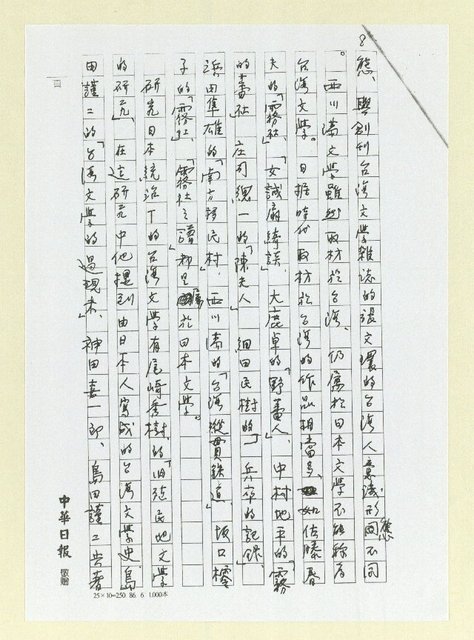 8
態、與創刊台灣文學雜誌的張文環的台灣人意識形態回不同
。
西川滿文學雖然取材於台灣、仍屬於日本文學不能歸為
台灣文學。日據時代取材於台灣的作品相當多、如佐藤春
夫的「霧社」、「女誡扇綺談」、大鹿卓的「野蕃人」、中村地平的「霧
的蕃社」、庄司總一的「陳夫人」、細田民樹的「兵卒的記錄」、
浜田隼雄的「南方移民村」、西川滿的「台灣縱貫鐵道」、坂口䙥
子的「霧社」、「霧社之譜」都是屬於日本文學。
研究日本統治下的台灣文學有尾崎秀樹的「旧殖民地文學
的研究」、在這研究中他提到由日本人寫成的台灣文學史、島
田謹二的「台湾文學的過現未」、神田喜一郎、島田謹二共著
中華日報 敬贈
25×10=250 86. 6 1,000本